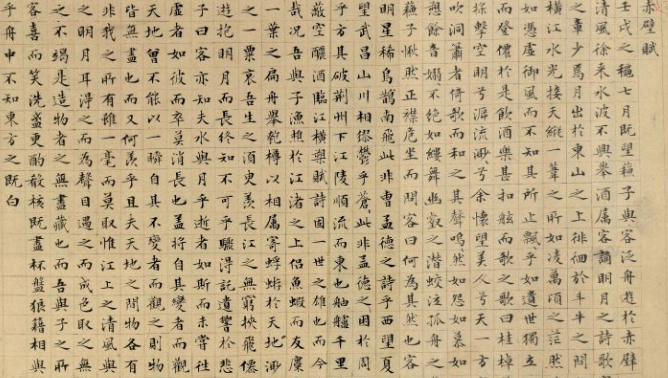 赤壁賦
壬戌之秋七月既望蘇子與客泛舟遊於赤壁
清風徐來水波不興舉酒屬客誦明月之詩歌
之章少焉月出於東山之上徘徊於斗牛之間
橫江水光接天縱一葦之所如凌萬頃之茫然
如憑虛御風而不知其所止飄乎如遺世獨立
而登僊於是飲酒樂甚扣舷而歌之歌曰桂棹
槳擊空明兮泝流光渺兮余懷望美人兮天一方
吹洞簫者倚歌而和之其聲嗚然如怨如慕如
愬餘音嫋不絕如縷舞幽壑之潛蛟泣孤舟之
蘇子愀然正襟危坐而問客曰何為其然也客
明星稀烏鵲南飛此非曹孟德之詩乎西望夏
望武昌山川相繆鬱乎蒼此非孟德之困於周
乎方其破荊州下江陵順流而東也舳艫千里
蔽空釃酒臨江橫槊賦詩固一世之雄也而今
哉況吾與子漁樵於江渚之上侶魚蝦而友麋
一葉之扁舟舉匏樽以相屬寄蜉蝣於天地渺
之一粟哀吾生之須臾羨長江之無窮挾飛僊
遊抱明月而長終知不可乎驟得託遺響於悲
子曰客亦知夫水與月乎逝者如斯而未嘗往
虛者如彼而卒莫消長也蓋將自其變者而觀
天地曾不能以一瞬自其不變者而觀之則物
皆無盡也而又何羨乎且夫天地之間物各有
非我之所有雖一毫而莫取惟江上之清風與
之明月耳得之而為聲目遇之而成色取之無
之不竭是造物者之無盡藏也而吾與子之所
客喜而笑洗盞更酌殽核既盡杯盤狼藉相與
乎舟中不知東方之既白